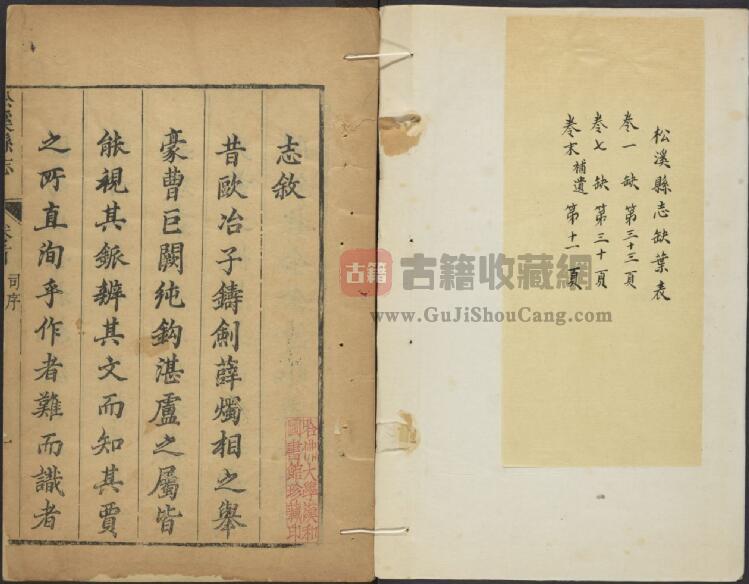 松溪縣志缺葉表
卷一 缺 第三十三頁
卷七 缺 第三十頁
卷末 補遺 第十一頁
志敘
昔歐冶子鑄劍薛燭相之舉
豪曹巨闕純鈎湛盧之屬皆
能視其鈲辨其文而知其賈
之所直洵乎作者難而識者
松溪縣志
司序
一
哈佛大學漢和
圖書館珍藏印
古籍
古籍收藏網
www.GuJiShouCang.com